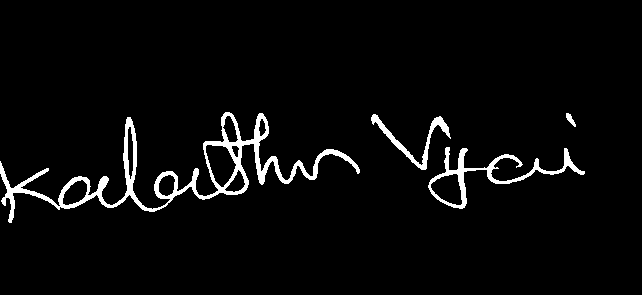 Kalaithur Vijai